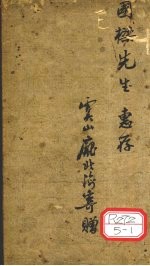 國樑先生惠存
雲山廠北海寄贈
R272
5-1